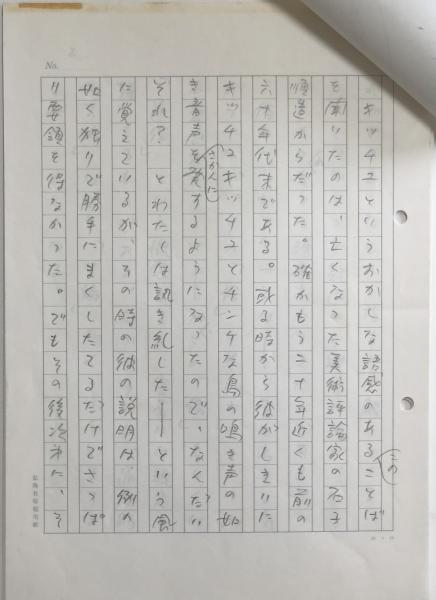 No. 2
キッチユというおかしな語感のあることば
この
を聞いたのは、亡くなった美術評論家の石子
順造からだった。確かもう二十年近くも前の
六十年代末である。或る時から彼がしきりに
キッチユキッチユとチンケな鳥の鳴き声の如
さかんに
き音声を発するようになったので、なんだい
それ?とわたしは訊き糺した——という風
に覚えているが、その時の彼の説明は、例の
如く独りで勝手にまくしたてるだけでさっぱ
り要領を得なかった。でもその後 、そ